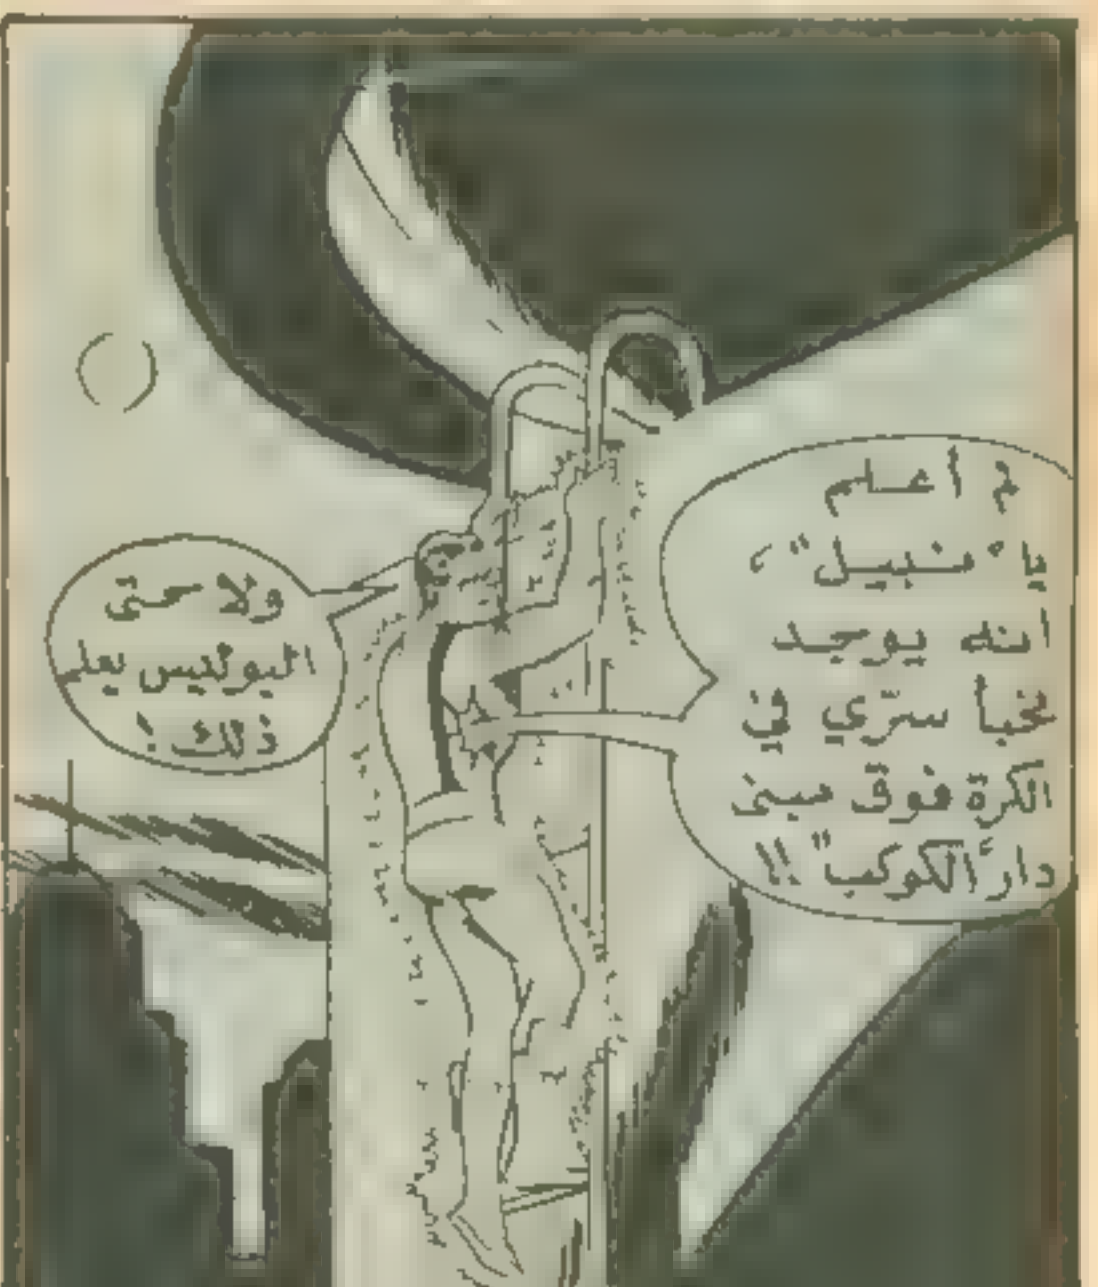 لم أعلم
يا "نبيل"،
انه يوجد
مخبأ سرّي في
الكرة فوق مبنى
دار "الكوكب" !!
ولا حتّى
البوليس يعلم
ذلك !